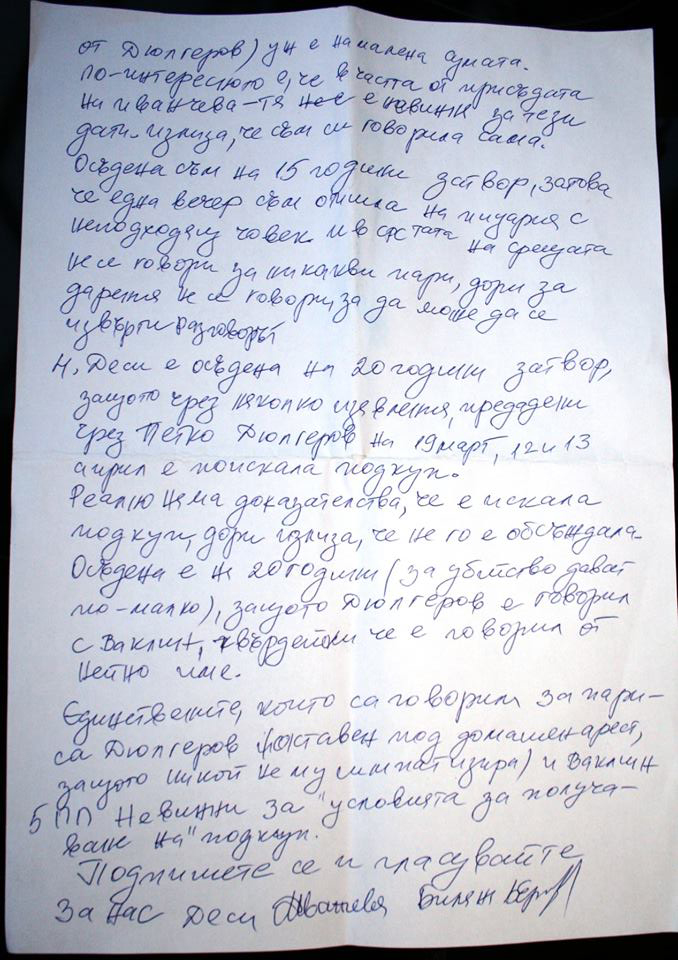 от Дюлгеров) уж е намалена сумата.
По-интересното е, че в частта от присъдата
на Иванчева - тя не е невинни за тези
дати. Излиза, че съм си говорила сама.
Осъдена съм на 15 години затвор, затова
че една вечер съм отишла на пицария с
неподходящ човек. И в стата на срещата
не се говори за никакви пари, дори за
дарения не се говори, за да може да се
извърти разговорът
4. Деси е осъдена на 20 години затвор,
защото чрез няколко изявления, предадени
чрез Петко Дюлгеров на 19 март, 12 и 13
април е поискала подкуп.
Реално няма доказателства, че е искала
подкуп, дори излиза, че не го е обсъждала.
Осъдена е на 20 години (за убийство дават
по-малко), защото Дюлгеров е говорил
с Ваклин, твърдейки че е говорил от
нейно име.
Единствените, които са говорили за пари -
са Дюлгеров (поставен под домашен арест,
защото никой не му симпатизира) и Ваклин
5 ПП Невинни за "условията за получа-
ване на" подкуп.
Подпишете се и гласувайте
за нас Деси Иванчева Биляна